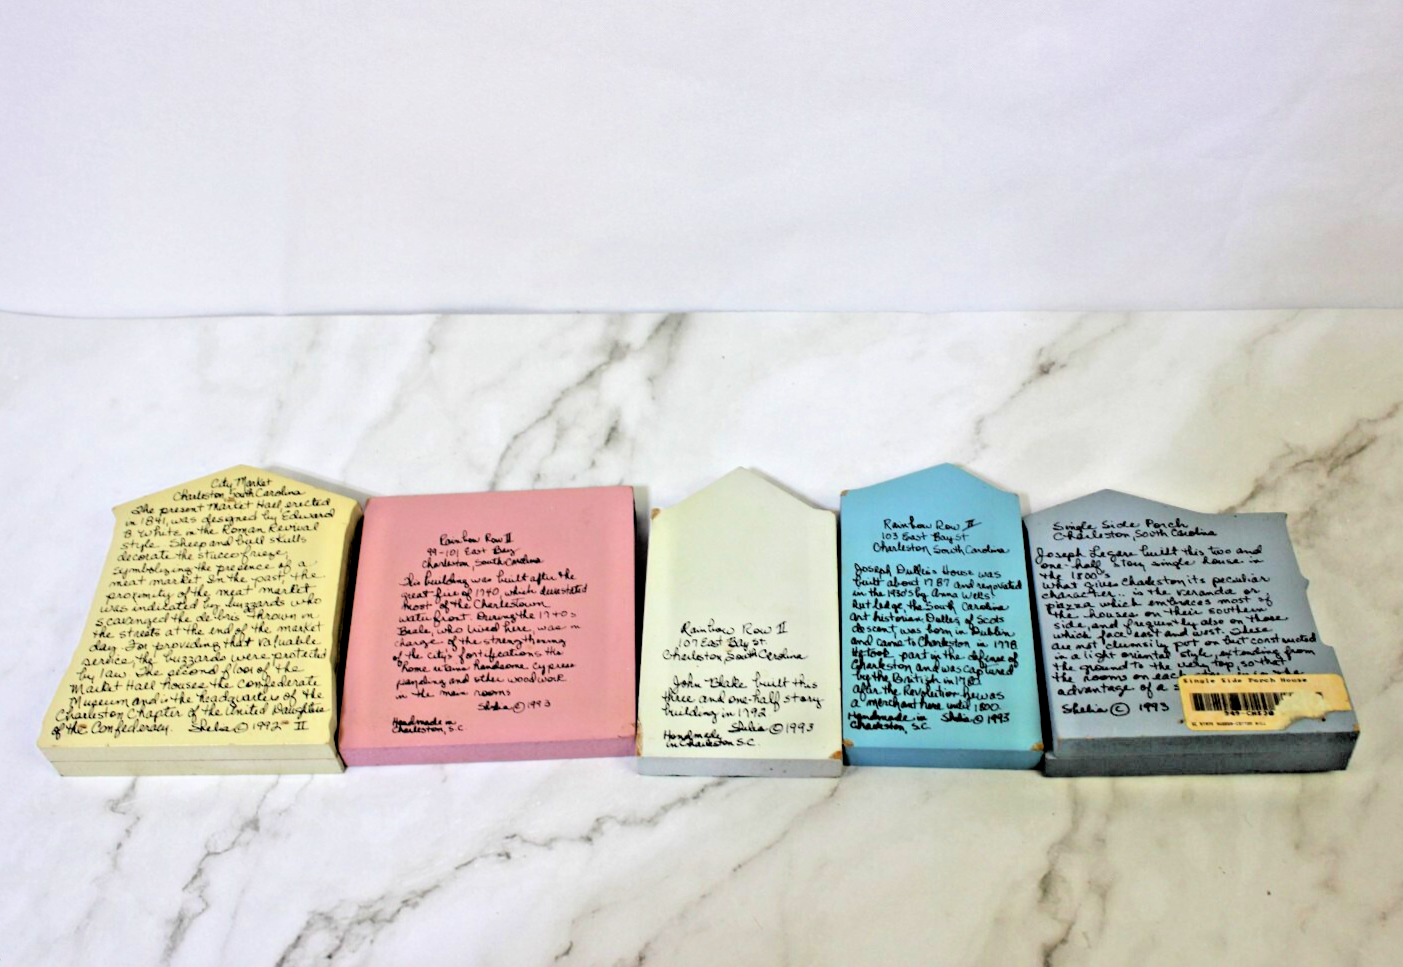 City Market
Charleston South Carolina
The present Market Hall, erected
in 1841, was designed by Edward
B. White in the Roman Revival
style. Sheep and bull skulls
decorate the stucco frieze,
symbolizing the presence of a
meat market. In the past, the
proximity of the meat market
was indicated by buzzards who
scavenged the debris thrown in
the streets at the end of the market
day. For providing that valuable
service, the buzzards were protected
by law. The second floor of the
Market Hall houses the Confederate
Museum and is the headquarters of the
Charleston Chapter of the United Daughters
of the Confederacy. Shelia © 1992 II
Rainbow Row II
99-101 East Bay
Charleston, South Carolina
This building was built after the
great fire of 1740, which devastated
most of the Charlestown
waterfront. During the 1740s
Beale, who lived here, was in
charge of the strengthening
of the city's fortifications. His
home has handsome cypress
paneling and other woodwork
in the main rooms
Shelia © 1993
Handmade in
Charleston, S.C.
Rainbow Row II
107 East Bay St
Charleston, South Carolina
John Blake built this
three and one-half story
building in 1792
Shelia © 1993
Handmade
in Charleston S.C.
Rainbow Row II
103 East Bay St
Charleston, South Carolina
Joseph Dulles's House was
built about 1787 and renovated
in the 1930's by Anna Wells
Rutledge, the South Carolina
Art historian. Dulles of Scots
descent was born in Dublin
and came to Charleston in 1778
He took part in the defense of
Charleston and was captured
by the British in 1781
After the Revolution he was
a merchant here until 1800.
Handmade in Shelia © 1993
Charleston, S.C.
Single Side Porch
Charleston, South Carolina
Joseph Legare built this two and
one-half story single house in
the 1800's.
What gives Charleston its peculiar
character.. is the veranda or
piazza which embraces most of
the houses on their southern
side, and frequently also on those
which face east and west. These
are not clumsily put on but constructed
in a light oriental style, extending from
the ground to the very top, so that
the rooms on each
advantage of a s
Shelia © 1993
Single Side Porch House